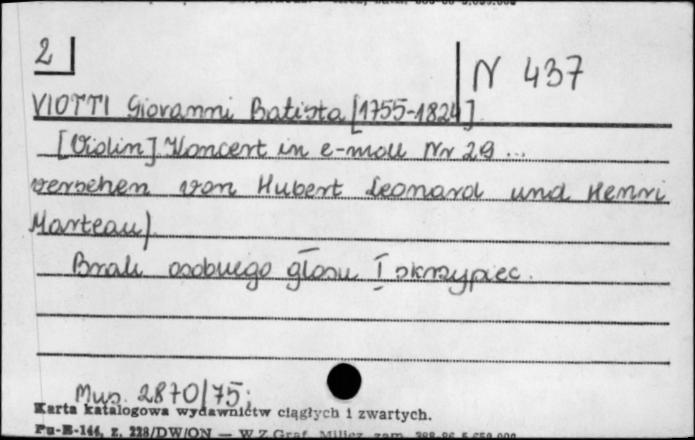 2
N 437
VIOTTI Giovanni Batista [1755-1824]
[Violin] Koncert in e-moll Nr 29 ...
versehen von Hubert Leonard und Henri
Marteau)
Brak osobnego głosu I skrzypiec.
Mus. 2870/75;
Karta katalogowa wydawnictw ciągłych i zwartych.
Pu-B-144, z. 228/DW/ON — W.Z.Graf. Milicz, zam.